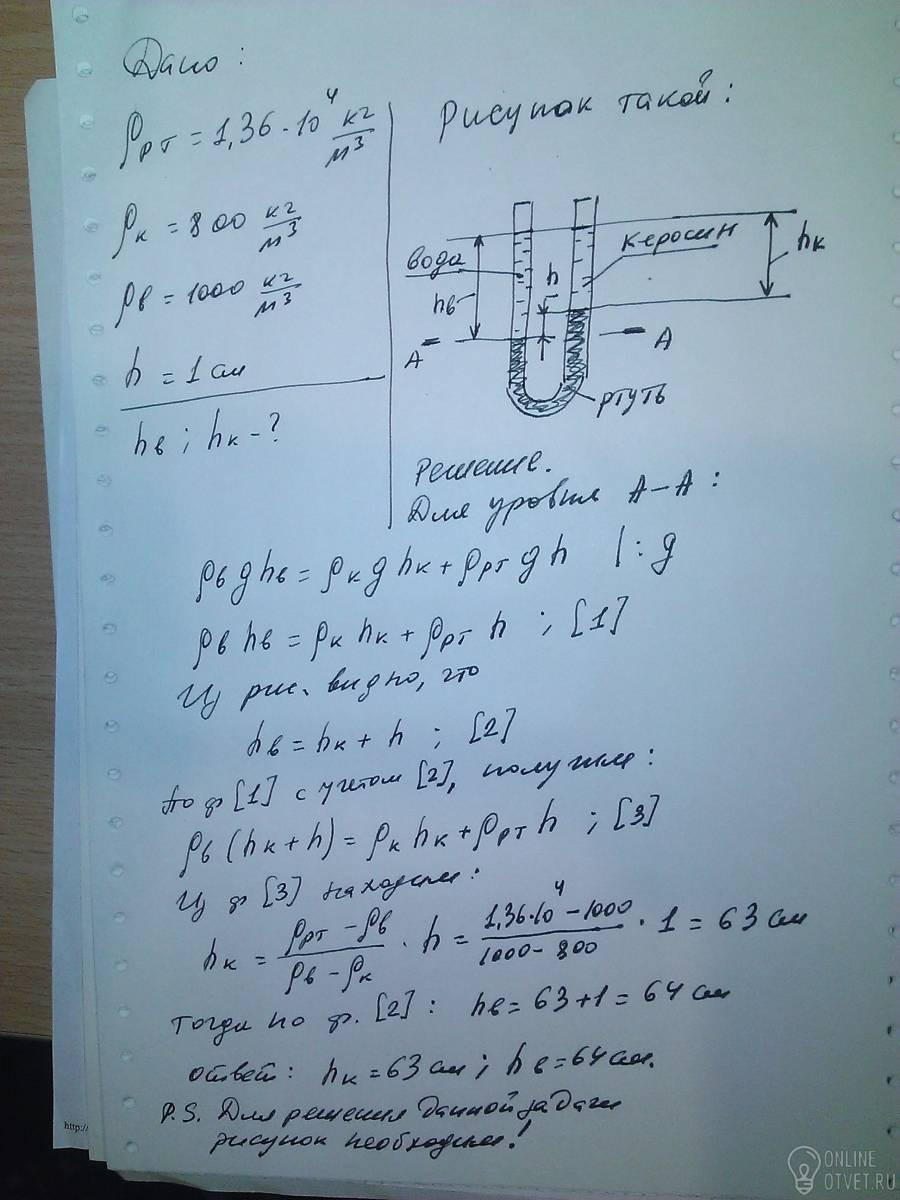 Дано:
ρрт = 1,36·10⁴ кг/м³
ρк = 800 кг/м³
ρв = 1000 кг/м³
h = 1 см
hв; hк - ?
Рисунок такой:
вода
керосин
hв
h
hк
A
A
ртуть
Решение.
Для уровня А-А:
ρв g hв = ρк g hк + ρрт g h | : g
ρв hв = ρк hк + ρрт h ; [1]
Из рис. видно, что
hв = hк + h ; [2]
По ф [1] с учетом [2], получим:
ρв (hк + h) = ρк hк + ρрт h ; [3]
Из ф [3] находим:
hк = (ρрт - ρв)/(ρв - ρк) · h = (1,36·10⁴ - 1000)/(1000 - 800) · 1 = 63 см
Тогда по ф. [2]: hв = 63 + 1 = 64 см
Ответ: hк = 63 см; hв = 64 см.
P.S. Для решения данной задачи
рисунок необходим!
http:/
ONLINE
OTVET.RU